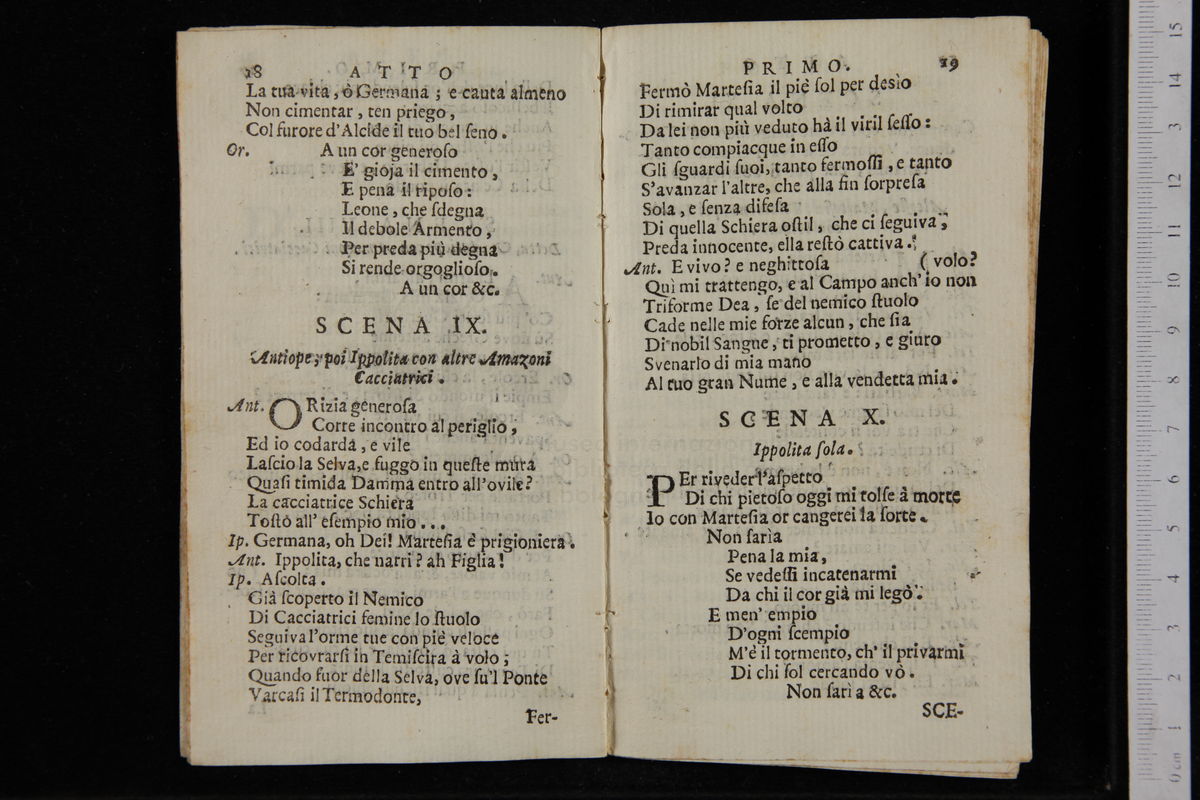 18 ATTO
La tua vita, ò Germana; e cauta almeno
Non cimentar, ten priego,
Col furore d'Alcide il tuo bel ſeno.
Or. A un cor generoſo
E' gioja il cimento,
E pena il ripoſo:
Leone, che ſdegna
Il debole Armento,
Per preda più degna
Si rende orgoglioſo.
A un cor &c.
SCENA IX.
Antiope, poi Ippolita con altre Amazoni
Cacciatrici.
Ant. ORizia generoſa
Corre incontro al periglio,
Ed io codarda, e vile
Laſcio la Selva, e fuggo in queſte mura
Quaſi timida Damma entro all'ovile?
La cacciatrice Schiera
Toſto all' eſempio mio...
Ip. Germana, oh Dei! Marteſia è prigioniera.
Ant. Ippolita, che narri? ah Figlia!
Ip. Aſcolta.
Già ſcoperto il Nemico
Di Cacciatrici femine lo ſtuolo
Seguiva l'orme tue con piè veloce
Per ricovrarſi in Temiſcira à volo;
Quando fuor della Selva, ove ſu'l Ponte
Varcaſi il Termodonte,
Fer-
PRIMO. 19
Fermò Marteſia il piè ſol per desìo
Di rimirar qual volto
Da lei non più veduto hà il viril ſeſſo:
Tanto compiacque in eſſo
Gli ſguardi ſuoi, tanto fermoſſi, e tanto
S'avanzar l'altre, che alla fin ſorpreſa
Sola, e ſenza difeſa
Di quella Schiera oſtil, che ci ſeguiva,
Preda innocente, ella reſtò cattiva.
Ant. E vivo? e neghittoſa (volo?
Quì mi trattengo, e al Campo anch' io non
Triforme Dea, ſe del nemico ſtuolo
Cade nelle mie forze alcun, che ſia
Di nobil Sangue, ti prometto, e giuro
Svenarlo di mia mano
Al tuo gran Nume, e alla vendetta mia.
SCENA X.
Ippolita ſola.
PEr riveder l'aſpetto
Di chi pietoſo oggi mi tolſe à morte
Io con Marteſia or cangerei la ſorte.
Non ſarìa
Pena la mia,
Se vedeſſi incatenarmi
Da chi il cor già mi legò.
E men' empio
D'ogni ſcempio
M'è il tormento, ch' il privarmi
Di chi ſol cercando vò.
Non ſarìa &c.
SCE-
0 cm 1 2 3 4 5 6 7 8 9 10 11 12 13 14 15